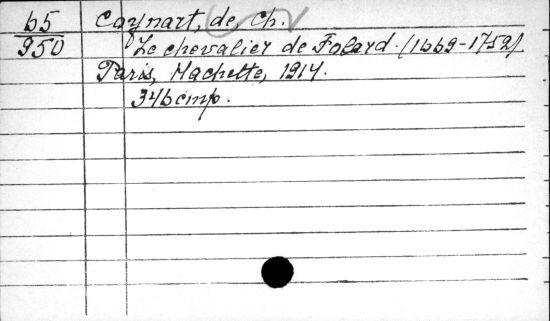 65 Coynart, de, Ch.
950 Le chevalier de Folard. (1669-1752)
Paris, Hachette, 1914.
346 стр.